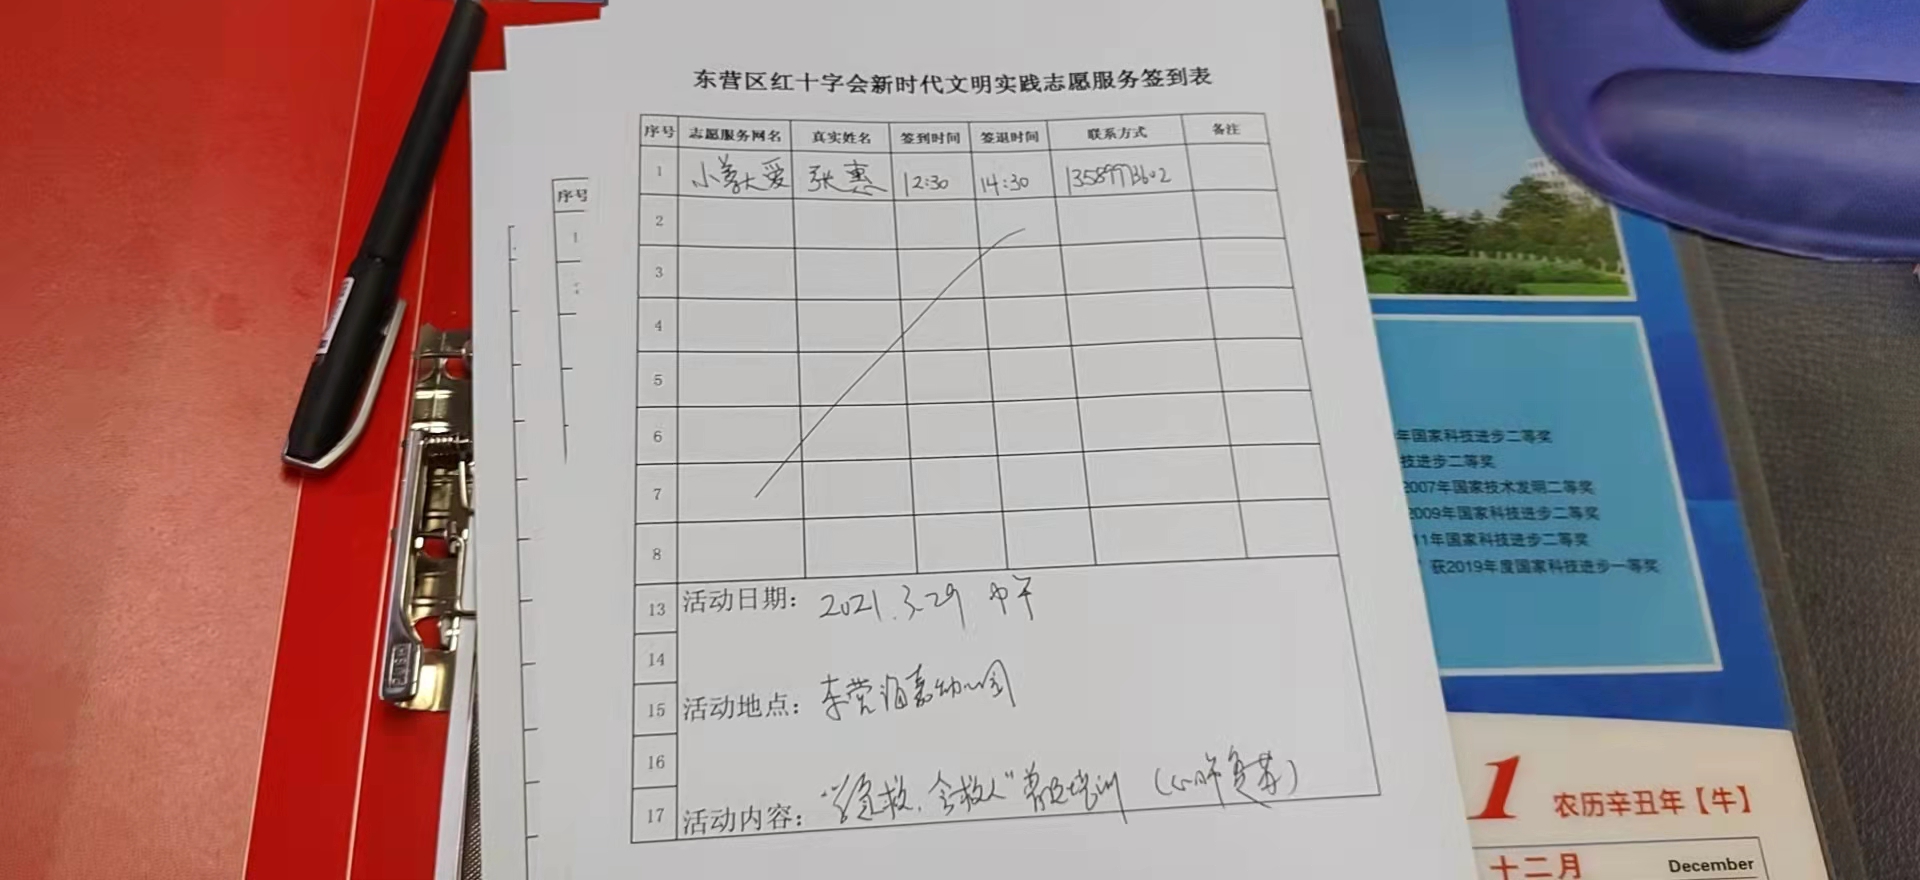 东营区红十字会新时代文明实践志愿服务签到表
序号 志愿服务网名 真实姓名 签到时间 签退时间 联系方式 备注
1 小善大爱 张惠 12:30 14:30 13589973602
2
3
4
5
6
7
8
13 活动日期: 2021.3.29 中午
14
15 活动地点: 东营海嘉幼儿园
16
17 活动内容: "学急救,会救人"普及培训 (心肺复苏)
序号
1
年国家科技进步二等奖
技进步二等奖
2007年国家技术发明二等奖
2009年国家科技进步二等奖
11年国家科技进步二等奖
获2019年度国家科技进步一等奖
1 农历辛丑年【牛】
十二月 December
PUSH